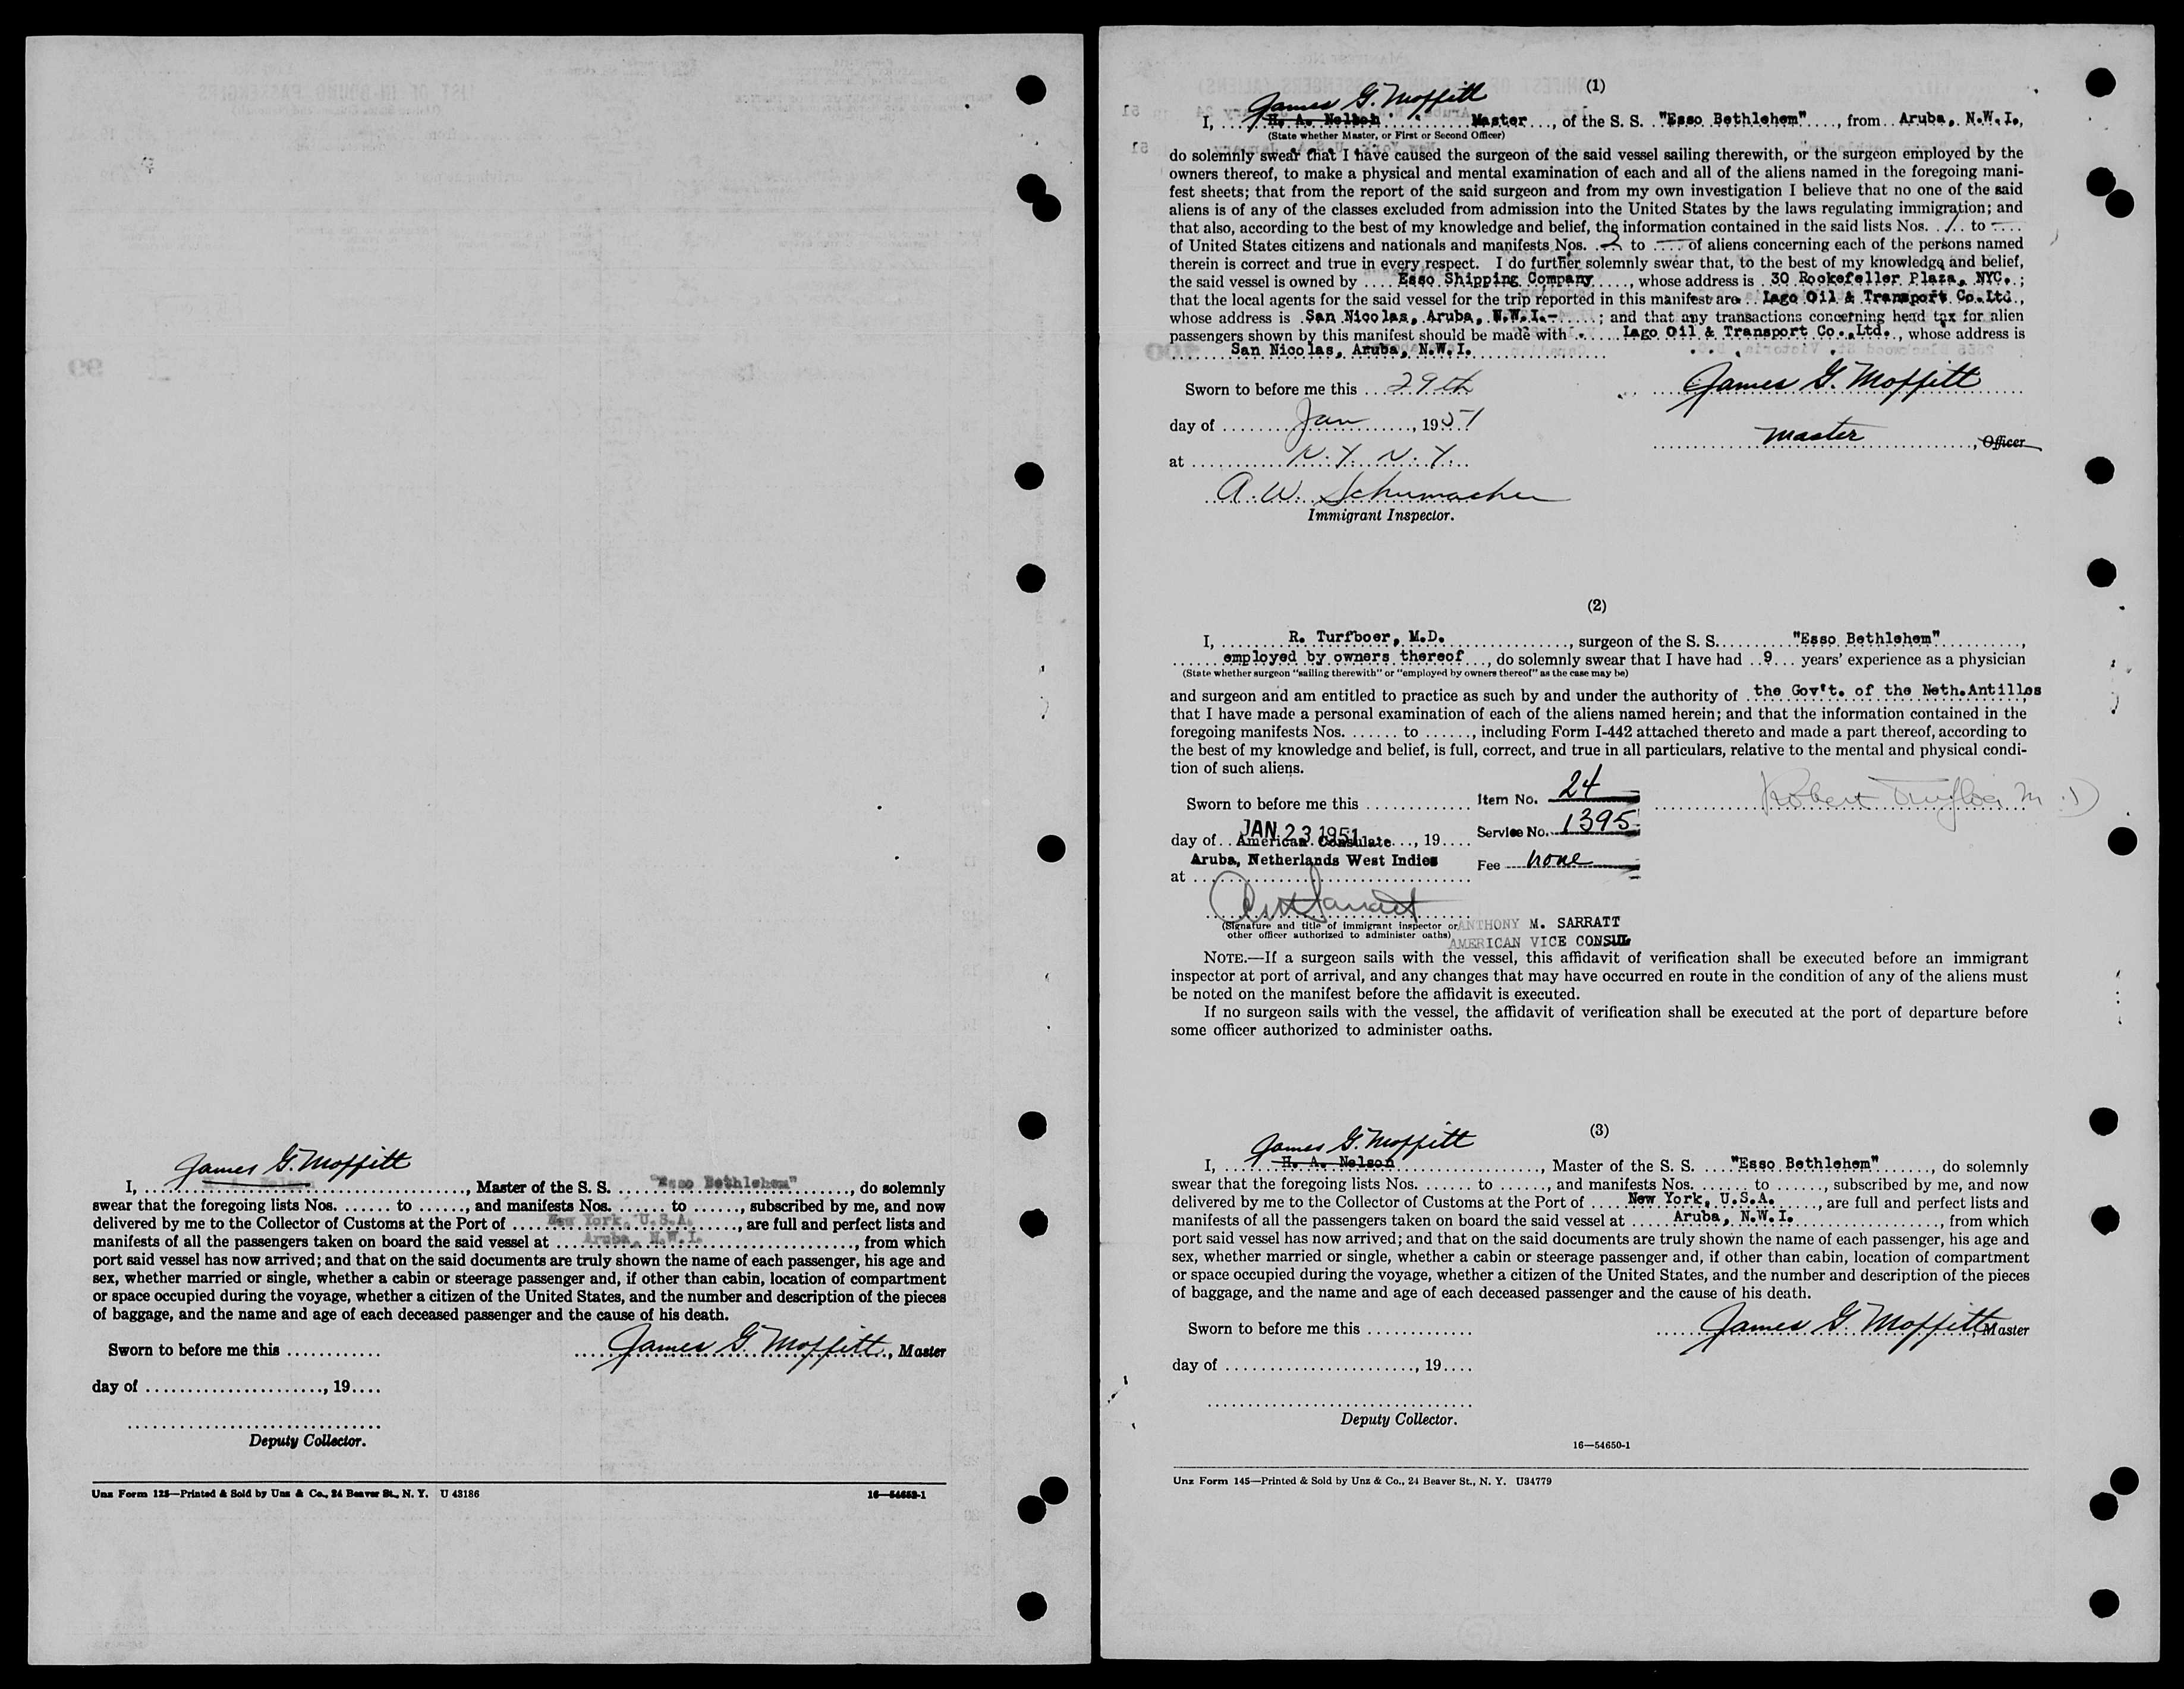 James G. Moffitt
I, ..................., Master of the S. S. "Esso Bethlehem", do solemnly
swear that the foregoing lists Nos. ...... to ......, and manifests Nos. ...... to ......, subscribed by me, and now
delivered by me to the Collector of Customs at the Port of New York, U.S.A., are full and perfect lists and
manifests of all the passengers taken on board the said vessel at Aruba, N.W.I., from which
port said vessel has now arrived; and that on the said documents are truly shown the name of each passenger, his age and
sex, whether married or single, whether a cabin or steerage passenger and, if other than cabin, location of compartment
or space occupied during the voyage, whether a citizen of the United States, and the number and description of the pieces
of baggage, and the name and age of each deceased passenger and the cause of his death.
Sworn to before me this ............ James G. Moffitt, Master
day of ......................, 19....
Deputy Collector.
Unz Form 125—Printed & Sold by Unz & Co., 24 Beaver St., N. Y. U 43186 16—54652-1
(1)
James G. Moffitt
I, H. A. Nelson Master, of the S. S. "Esso Bethlehem", from Aruba, N.W.I.,
(State whether Master, or First or Second Officer)
do solemnly swear that I have caused the surgeon of the said vessel sailing therewith, or the surgeon employed by the
owners thereof, to make a physical and mental examination of each and all of the aliens named in the foregoing mani-
fest sheets; that from the report of the said surgeon and from my own investigation I believe that no one of the said
aliens is of any of the classes excluded from admission into the United States by the laws regulating immigration; and
that also, according to the best of my knowledge and belief, the information contained in the said lists Nos. 1 to —
of United States citizens and nationals and manifests Nos. 2 to — of aliens concerning each of the persons named
therein is correct and true in every respect. I do further solemnly swear that, to the best of my knowledge and belief,
the said vessel is owned by Esso Shipping Company, whose address is 30 Rockefeller Plaza, NYC.;
that the local agents for the said vessel for the trip reported in this manifest are Lago Oil & Transport Co.Ltd.,
whose address is San Nicolas, Aruba, N.W.I.-; and that any transactions concerning head tax for alien
passengers shown by this manifest should be made with Lago Oil & Transport Co.,Ltd., whose address is
San Nicolas, Aruba, N.W.I.
Sworn to before me this 29th James G. Moffitt
day of Jan, 1951
master, Officer
at N.Y. N.Y.
A. W. Schumacher
Immigrant Inspector.
(2)
I, R. Turfboer, M.D., surgeon of the S. S. "Esso Bethlehem",
employed by owners thereof, do solemnly swear that I have had 9 years' experience as a physician
(State whether surgeon "sailing therewith" or "employed by owners thereof" as the case may be)
and surgeon and am entitled to practice as such by and under the authority of the Gov't. of the Neth.Antilles
that I have made a personal examination of each of the aliens named herein; and that the information contained in the
foregoing manifests Nos. ...... to ......, including Form I-442 attached thereto and made a part thereof, according to
the best of my knowledge and belief, is full, correct, and true in all particulars, relative to the mental and physical condi-
tion of such aliens.
Sworn to before me this ............ Item No. 24 Robert Turfboer M.D
day of JAN 23 1951 American Consulate, 19.... Service No. 1395
Aruba, Netherlands West Indies Fee none
at
(Signature and title of immigrant inspector or ANTHONY M. SARRATT
other officer authorized to administer oaths) AMERICAN VICE CONSUL
NOTE.—If a surgeon sails with the vessel, this affidavit of verification shall be executed before an immigrant
inspector at port of arrival, and any changes that may have occurred en route in the condition of any of the aliens must
be noted on the manifest before the affidavit is executed.
If no surgeon sails with the vessel, the affidavit of verification shall be executed at the port of departure before
some officer authorized to administer oaths.
(3)
James G. Moffitt
I, H. A. Nelson, Master of the S. S. "Esso Bethlehem", do solemnly
swear that the foregoing lists Nos. ...... to ......, and manifests Nos. ...... to ......, subscribed by me, and now
delivered by me to the Collector of Customs at the Port of New York, U.S.A., are full and perfect lists and
manifests of all the passengers taken on board the said vessel at Aruba, N.W.I., from which
port said vessel has now arrived; and that on the said documents are truly shown the name of each passenger, his age and
sex, whether married or single, whether a cabin or steerage passenger and, if other than cabin, location of compartment
or space occupied during the voyage, whether a citizen of the United States, and the number and description of the pieces
of baggage, and the name and age of each deceased passenger and the cause of his death.
Sworn to before me this ............ James G. Moffitt Master
day of ......................, 19....
Deputy Collector.
16—54650-1
Unz Form 145—Printed & Sold by Unz & Co., 24 Beaver St., N. Y. U34779